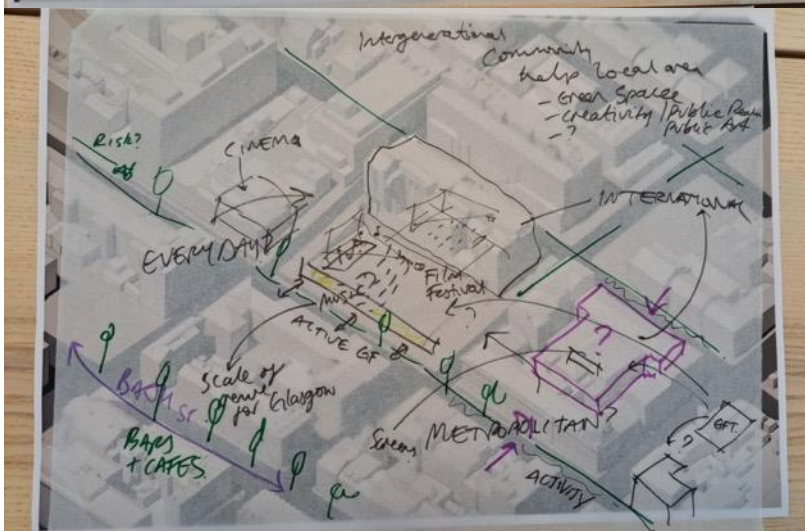 Intergenerational
Community
help local area
- Green Spaces
- creativity / Public Realm
Public Art
- ?
Risk?
CINEMA
INTERNATIONAL
EVERYDAY?
Film
Festival
?
MUSIC
?
ACTIVE GF
Scale of
venue
for Glasgow
BATH St.
BARS
+ CAFES.
?
Screens
METROPOLITAN?
GFT.
?
ACTIVITY